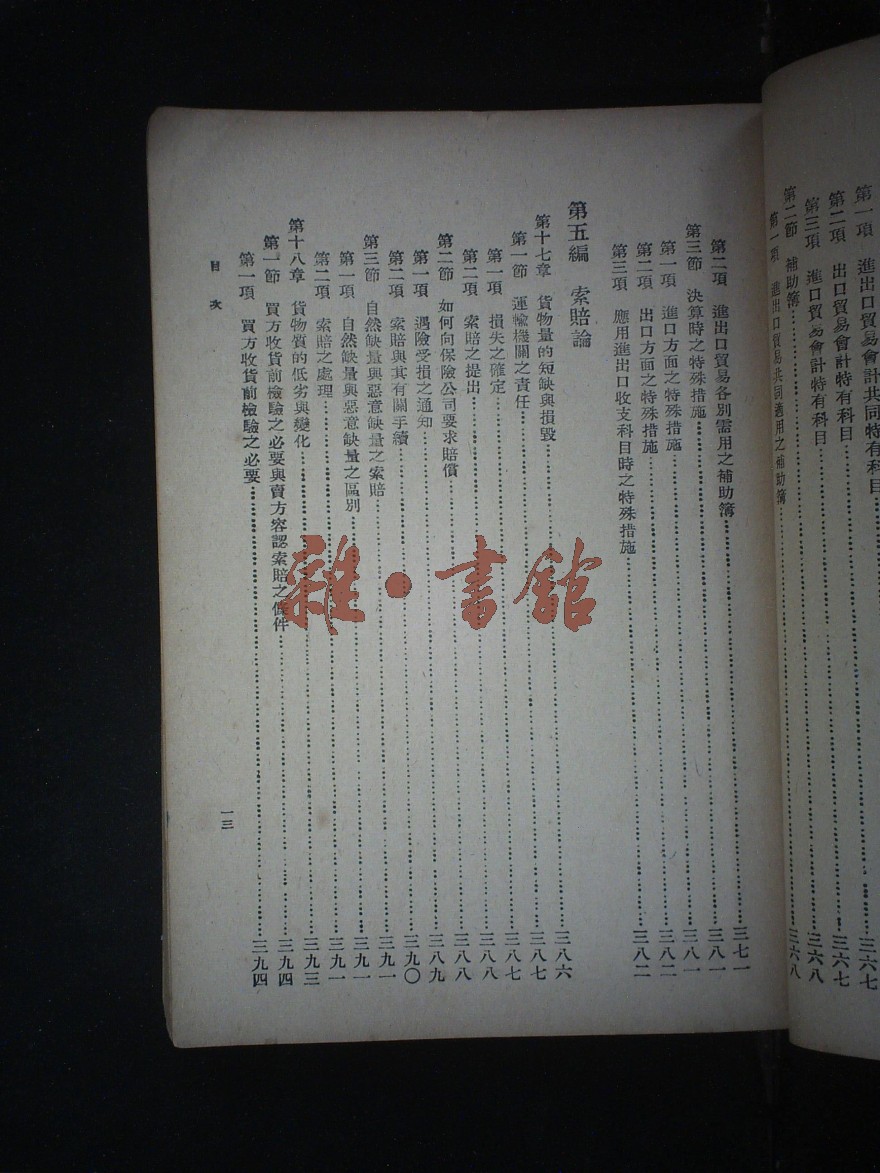 第一項　進出口貿易會計共同特有科目……三六七
第二項　出口貿易會計特有科目……三六七
第三項　進口貿易會計特有科目……三六八
第二節　補助簿……三六八
第一項　進出口貿易共同適用之補助簿……
第二項　進出口貿易各別需用之補助簿……三七一
第三節　決算時之特殊措施……三八一
第一項　進口方面之特殊措施……三八一
第二項　出口方面之特殊措施……三八二
第三項　應用進出口收支科目時之特殊措施……三八二
第五編　索賠論
第十七章　貨物量的短缺與損毀……三八六
第一節　運輸機關之責任……三八七
第一項　損失之確定……三八七
第二項　索賠之提出……三八八
第二節　如何向保險公司要求賠償……三八八
第一項　遇險受損之通知……三八九
第二項　索賠與其有關手續……三九〇
第三節　自然缺量與惡意缺量之索賠……三九一
第一項　自然缺量與惡意缺量之區別……三九一
第二項　索賠之處理……三九一
第十八章　貨物質的低劣與變化……三九三
第一節　買方收貨前檢驗之必要與賣方容認索賠之條件……三九四
第一項　買方收貨前檢驗之必要……三九四
目次
一三
雜·書館